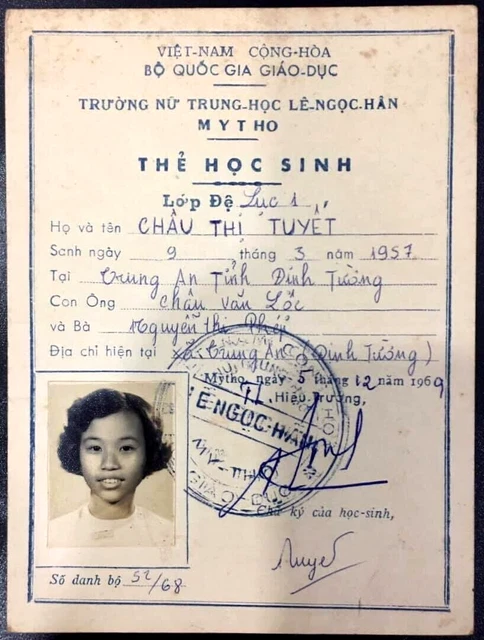 VIỆT-NAM CỘNG-HÒA
BỘ QUỐC GIA GIÁO-DỤC
TRƯỜNG NỮ TRUNG-HỌC LÊ-NGỌC-HÂN
MYTHO
THẺ HỌC SINH
Lớp Đệ Lục 1
Họ và tên CHÂU THỊ TUYẾT
Sanh ngày 9 tháng 3 năm 1957
Tại Trung An Tỉnh Định Tường
Con Ông Châu Văn Lốc
và Bà Nguyễn thị Phép
Địa chỉ hiện tại xã Trung An (Định Tường)
Mytho, ngày 5 tháng 12 năm 1969
Hiệu Trưởng,
LÊ-NGỌC-HÂN
MY-THO
Chữ ký của học-sinh,
Tuyết
Số danh bộ 52/68